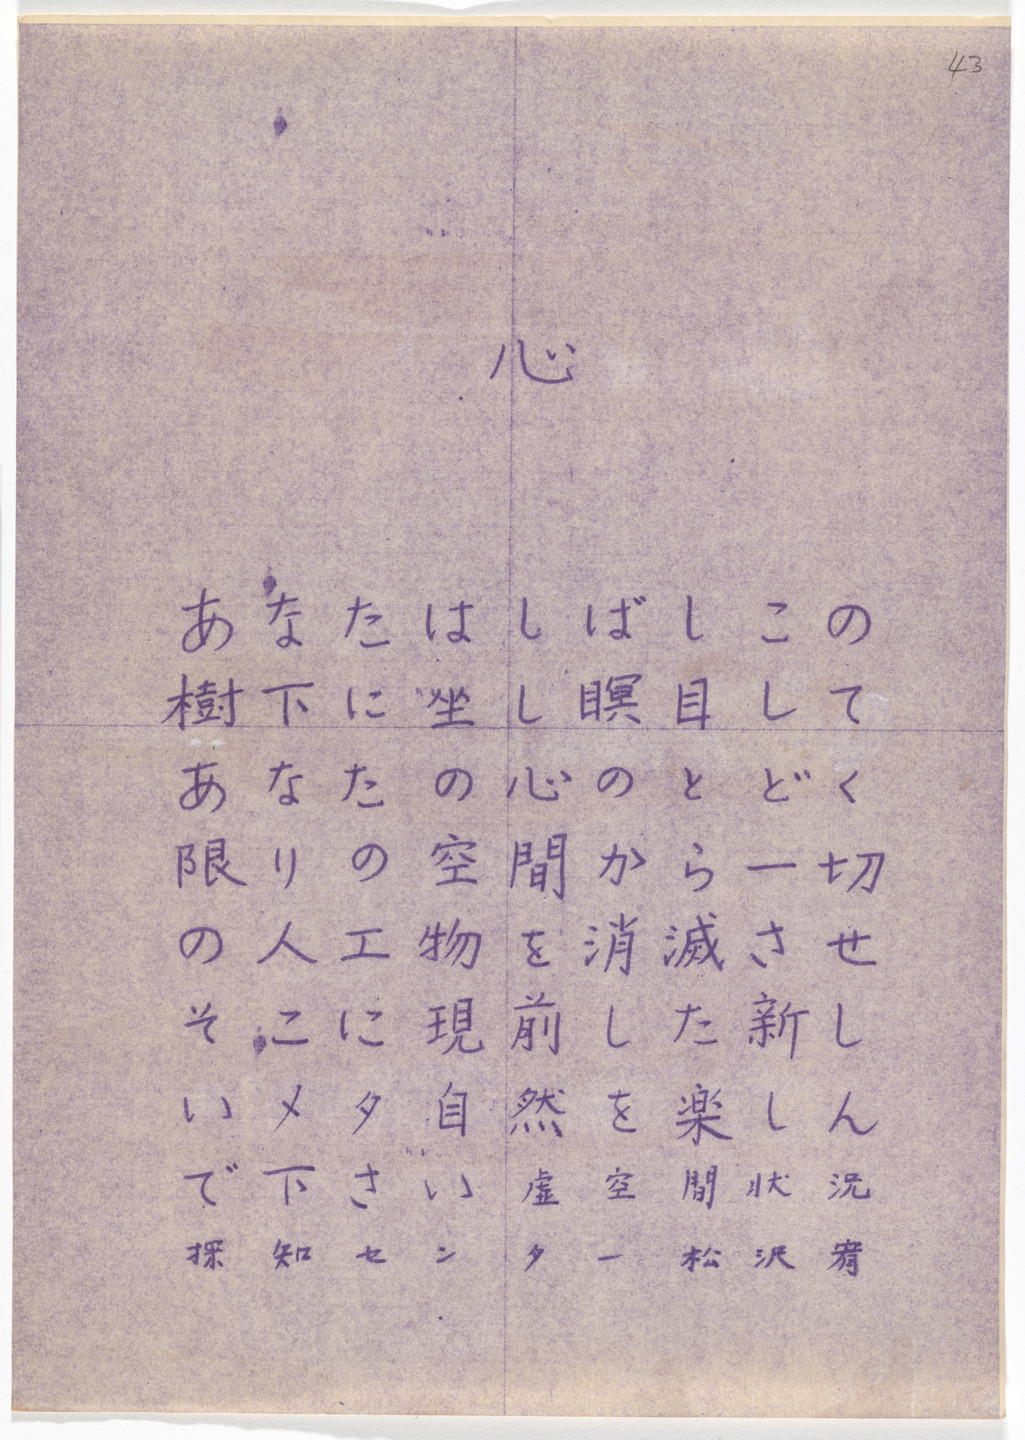 43
心
あなたはしばしこの
樹下に坐し瞑目して
あなたの心のとどく
限りの空間から一切
の人工物を消滅させ
そこに現前した新し
いメタ自然を楽しん
で下さい 虚空間状況
探知センター 松沢宥